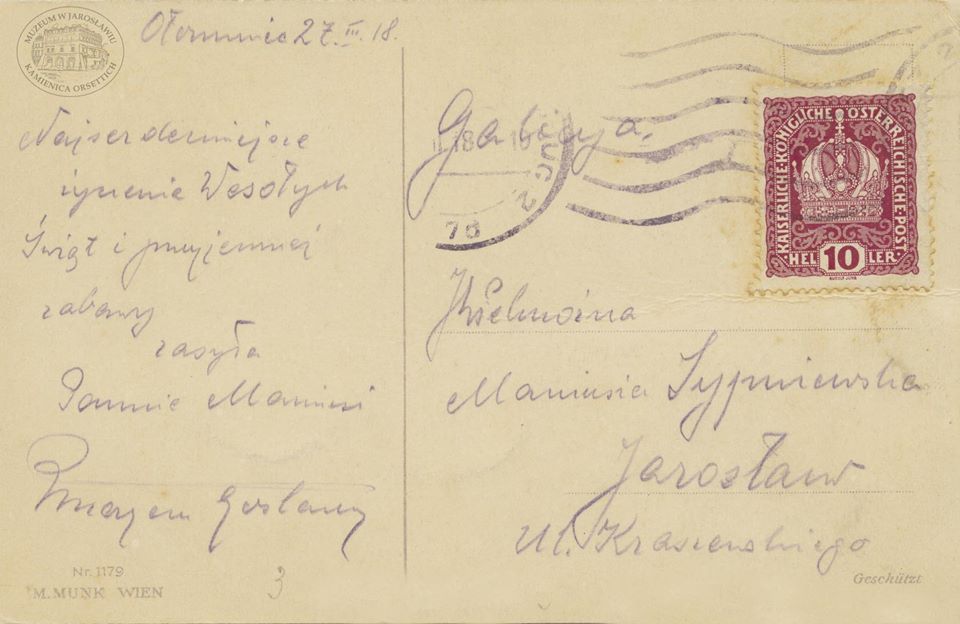 MUZEUM W JAROSŁAWIU
KAMIENICA ORSETTICH
Ołomuniec 27.III.18.
Najserdeczniejsze
życzenia Wesołych
Świąt i przyjemnej
zabawy
zasyła
Pannie Maniusi
Nr. 1179
M. MUNK WIEN
3
Galicya.
18
AUG 2
7d
KAISERLICHE·KÖNIGLICHE ÖSTERREICHISCHE·POST
HELLER
10
JWielmożna
Maniusia Sypniewska
Jarosław
Ul. Kraszewskiego
Geschützt